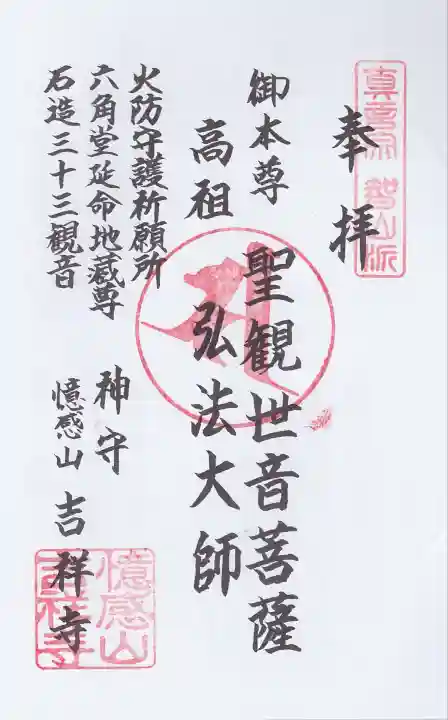 真言宗 智山派
奉拝
御本尊 聖観世音菩薩
高祖 弘法大師
火防守護祈願所
六角堂延命地蔵尊
石造三十三観音
神守
憶感山 吉祥寺
憶感山
吉祥寺